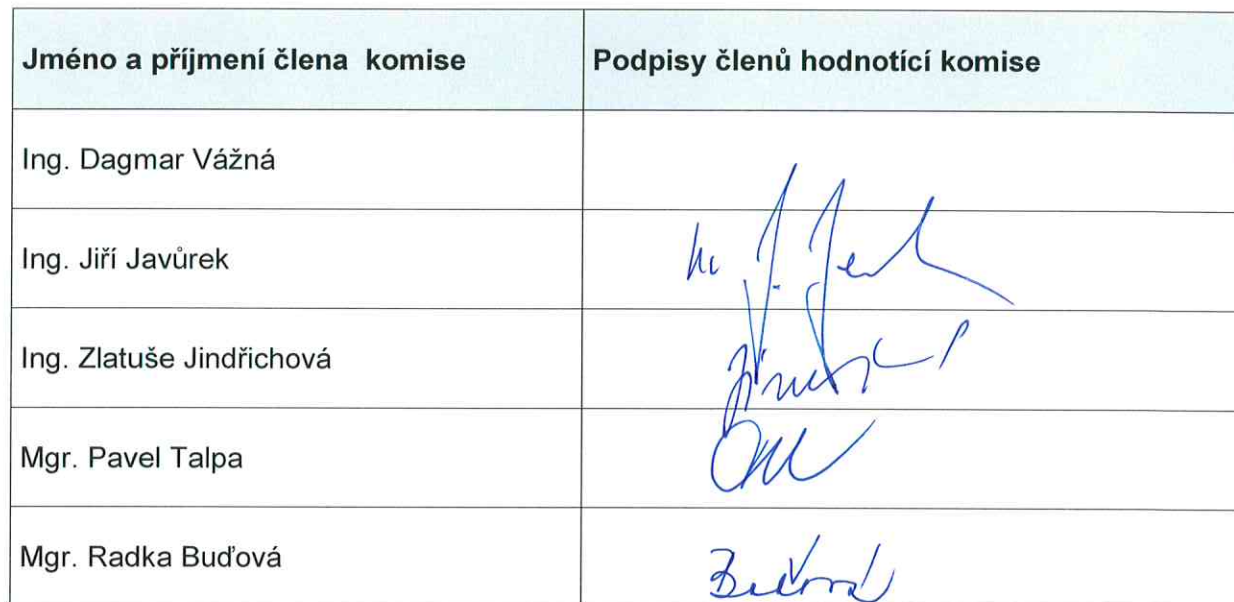 Jméno a příjmení člena komise
Podpisy členů hodnotící komise
Ing. Dagmar Vážná
Ing. Jiří Javůrek
Ing. Zlatuše Jindřichová
Mgr. Pavel Talpa
Mgr. Radka Buďová